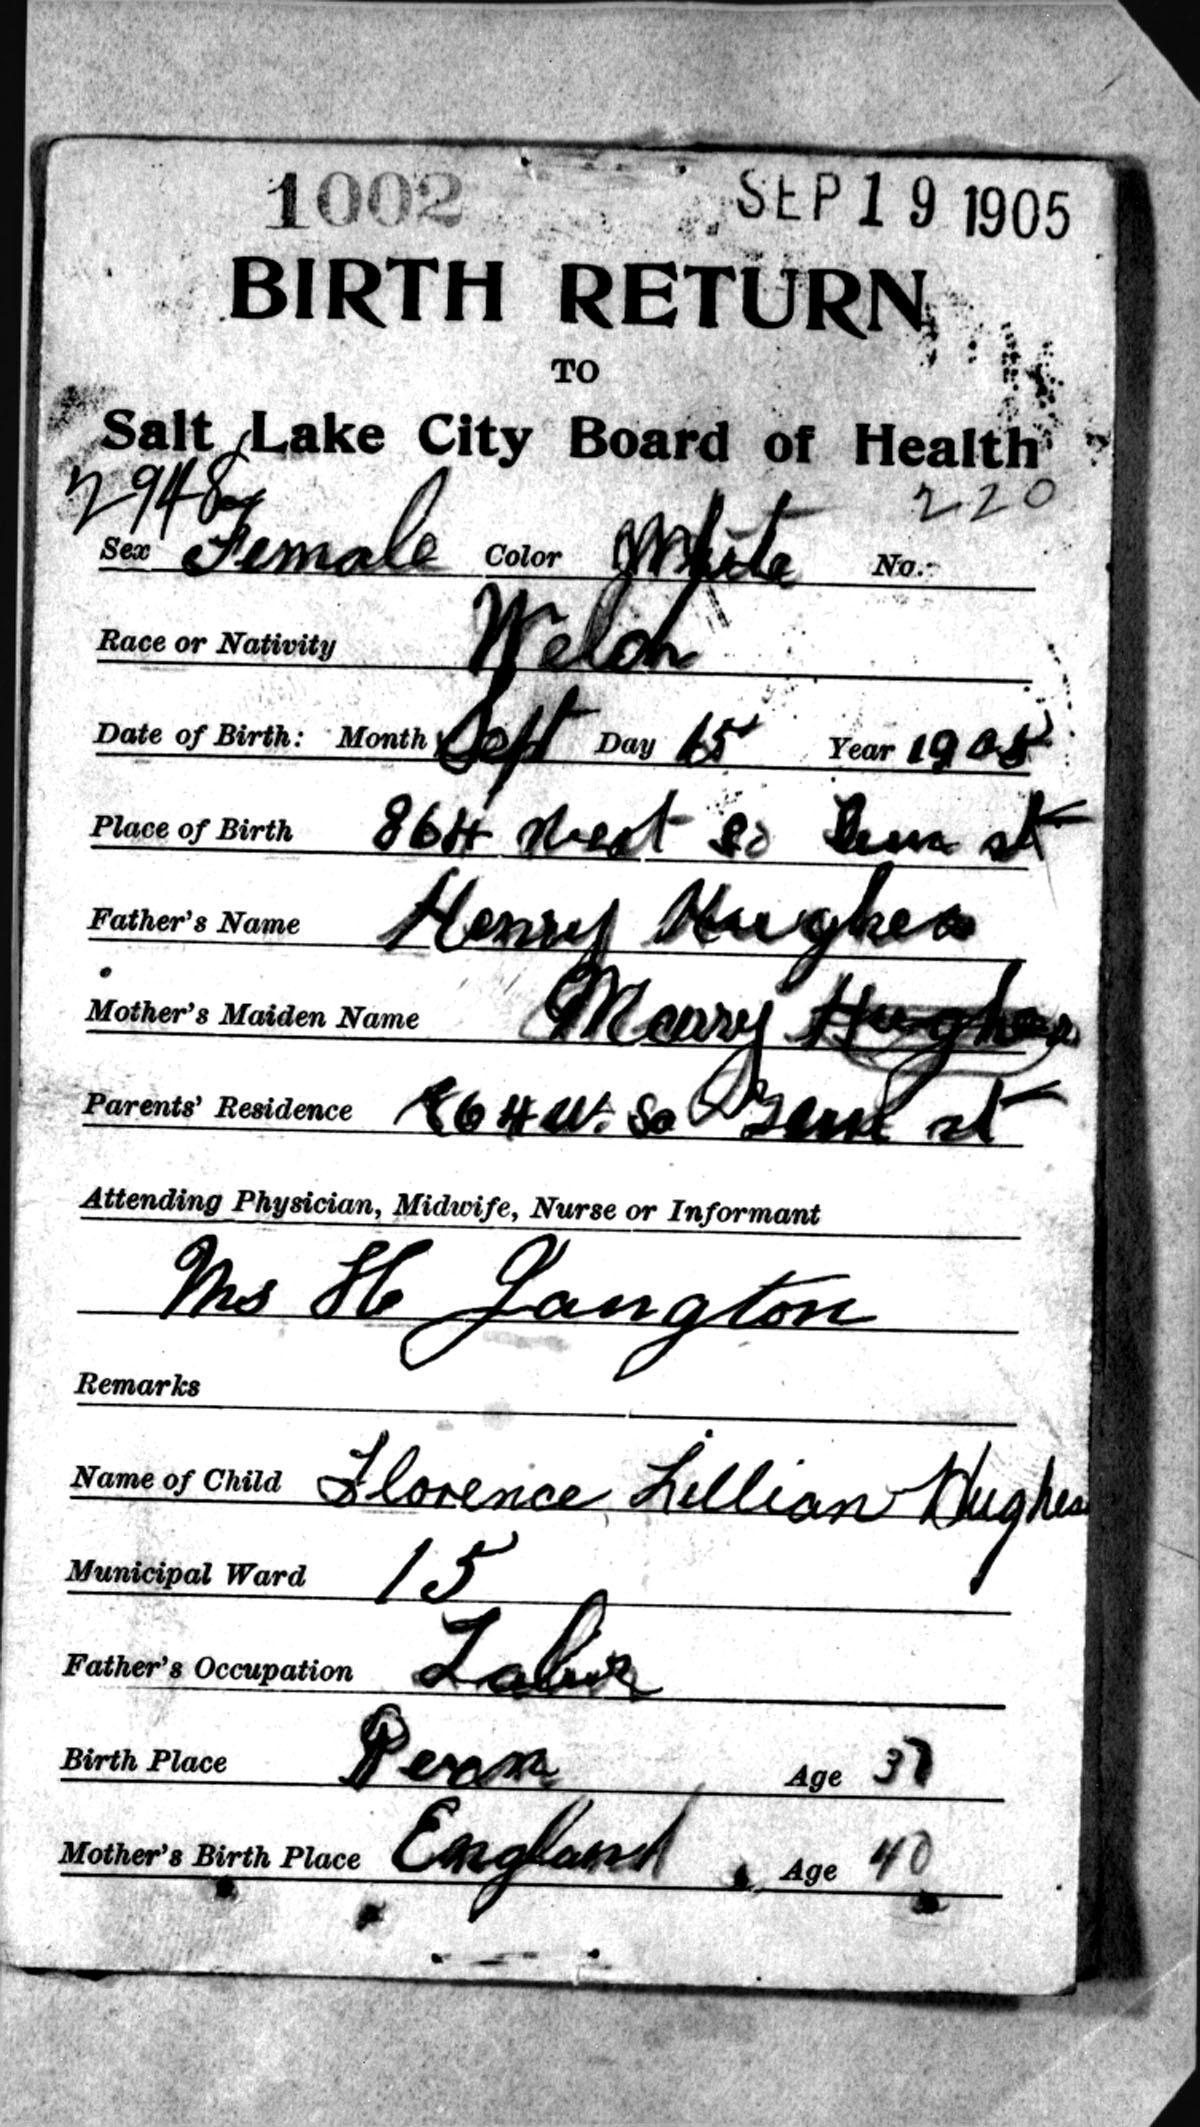 1002 SEP 19 1905
BIRTH RETURN
TO
Salt Lake City Board of Health
2948 220
Sex Female Color White No.
Race or Nativity Welch
Date of Birth: Month Sept Day 15 Year 1905
Place of Birth 864 West So Tem st
Father's Name Henry Hughes
Mother's Maiden Name Mary Hughes
Parents' Residence 864 W. So Tem st
Attending Physician, Midwife, Nurse or Informant
Mrs H Langton
Remarks
Name of Child Florence Lillian Hughes
Municipal Ward 15
Father's Occupation Labor
Birth Place Age 37
Mother's Birth Place England Age 40